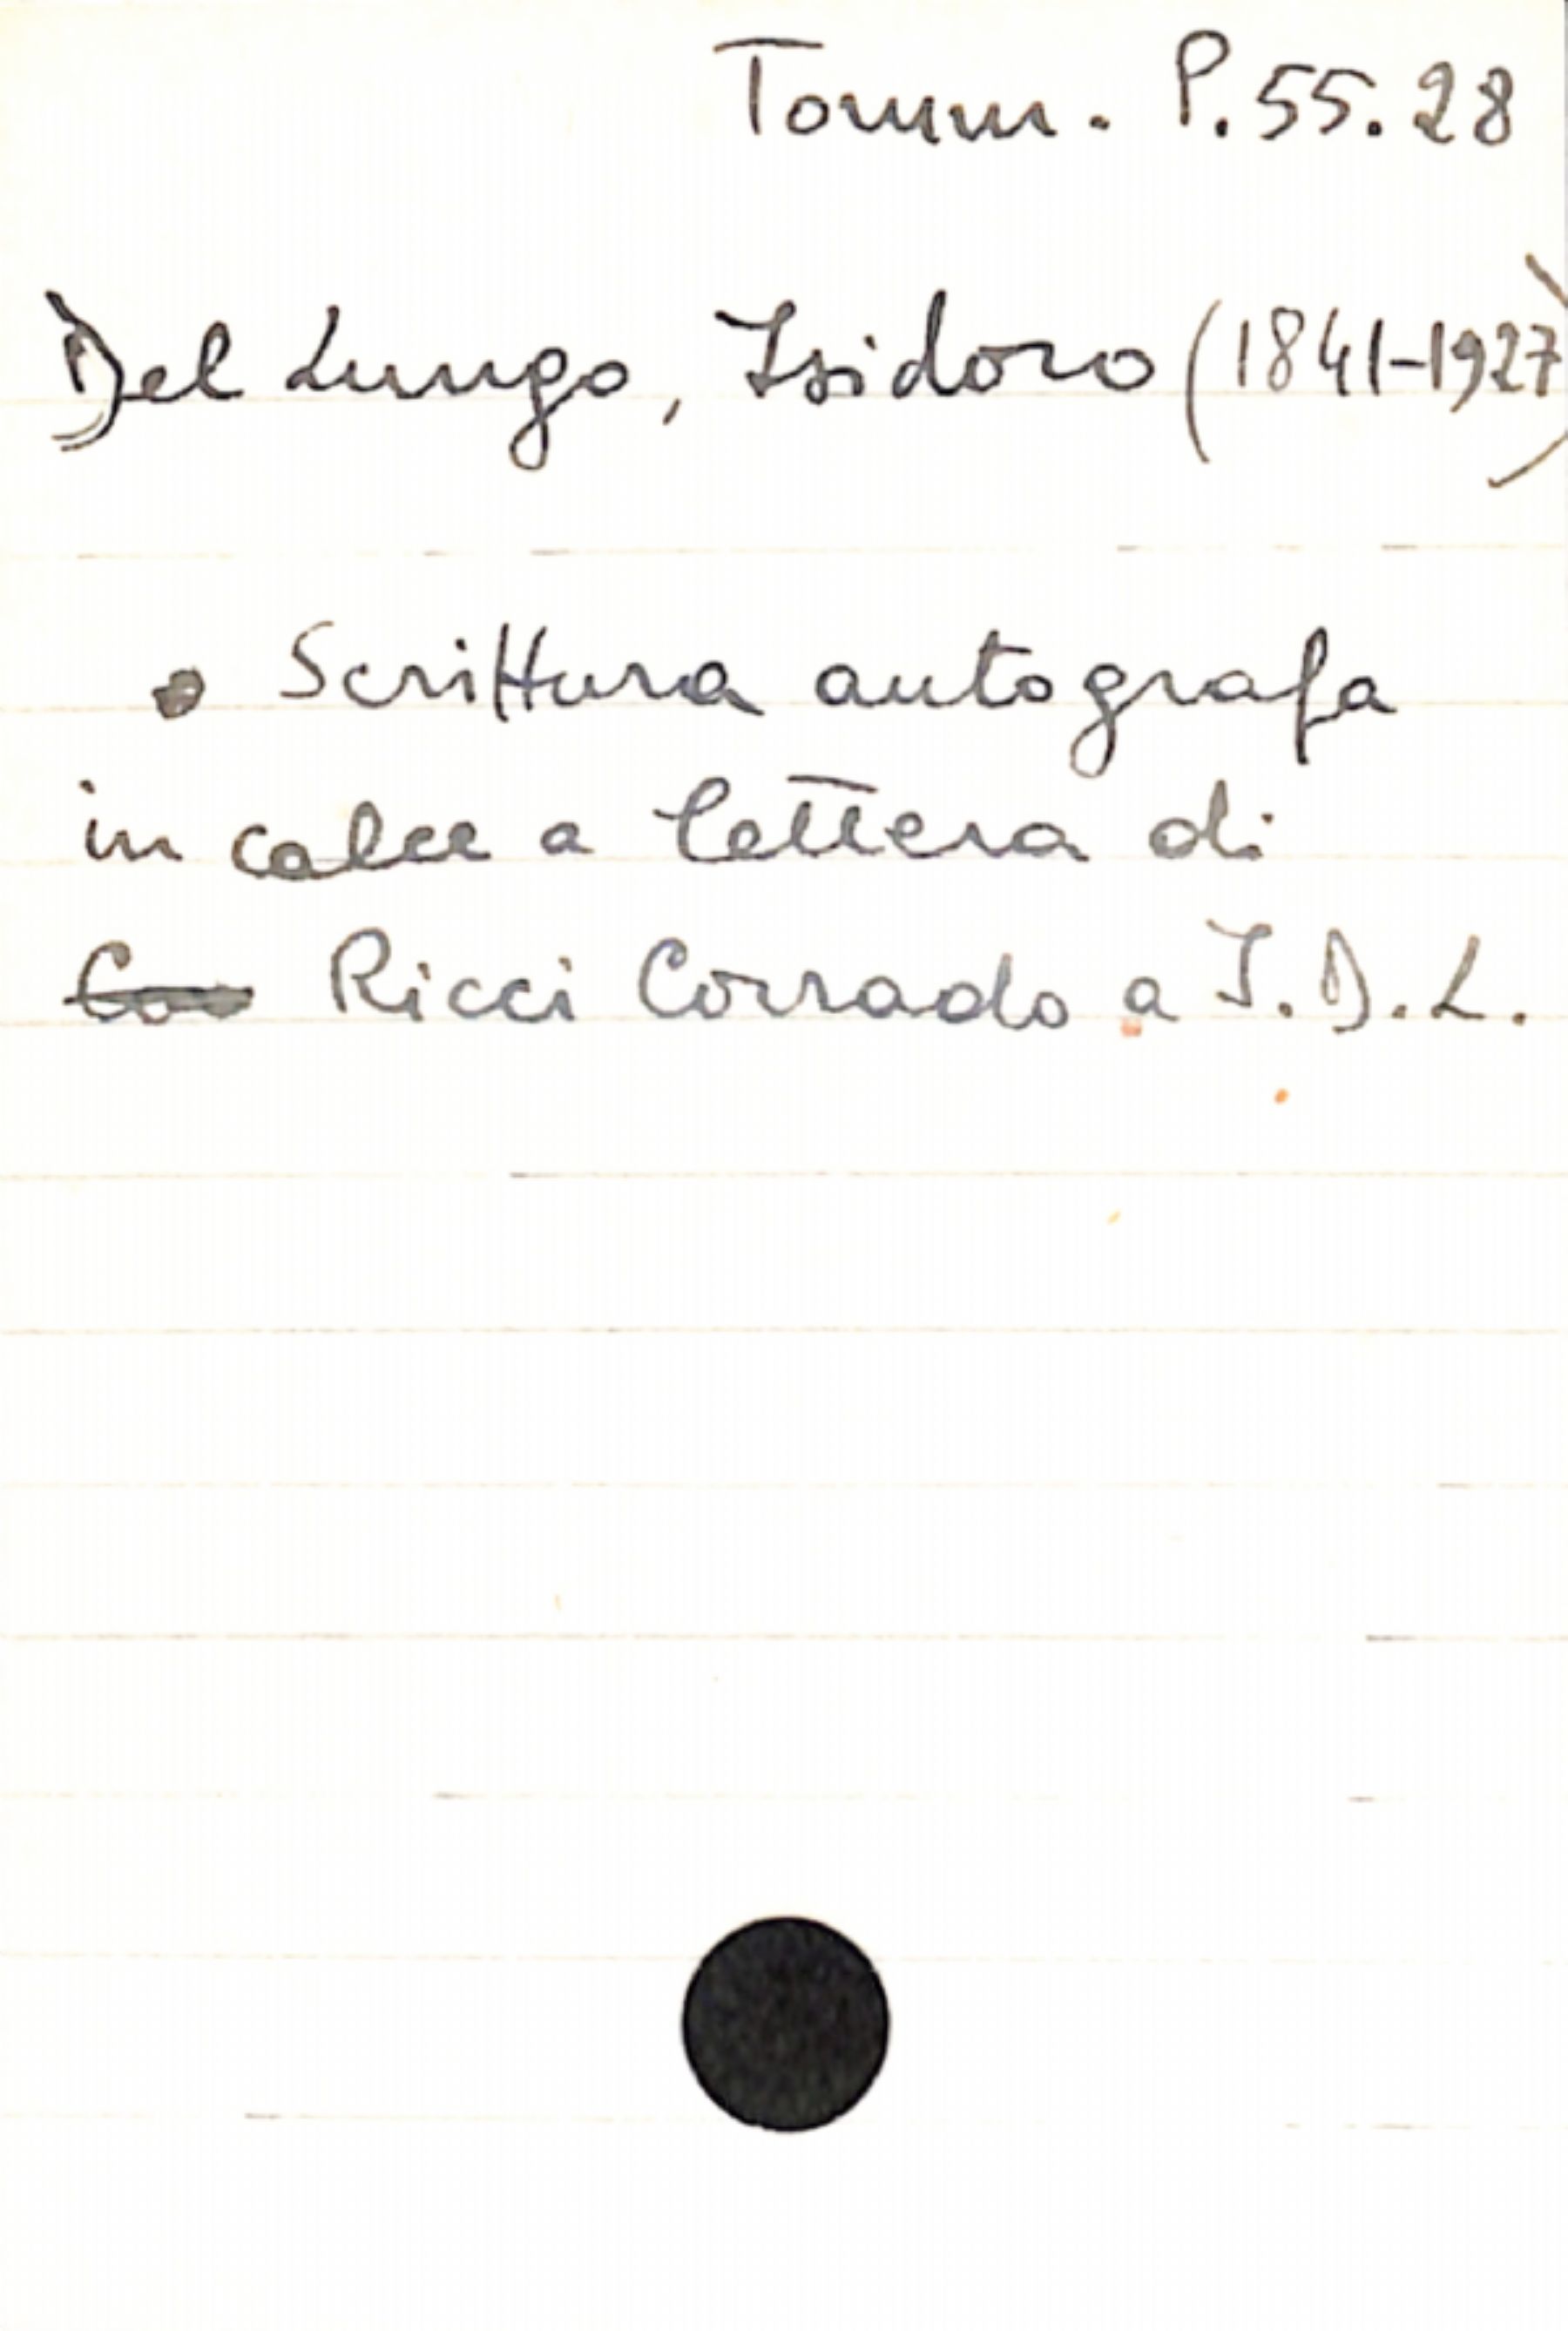 Tomm. P.55.28
Del Lungo, Isidoro (1841-1927)
• Scrittura autografa
in calce a lettera di
Ricci Corrado a I.D.L.